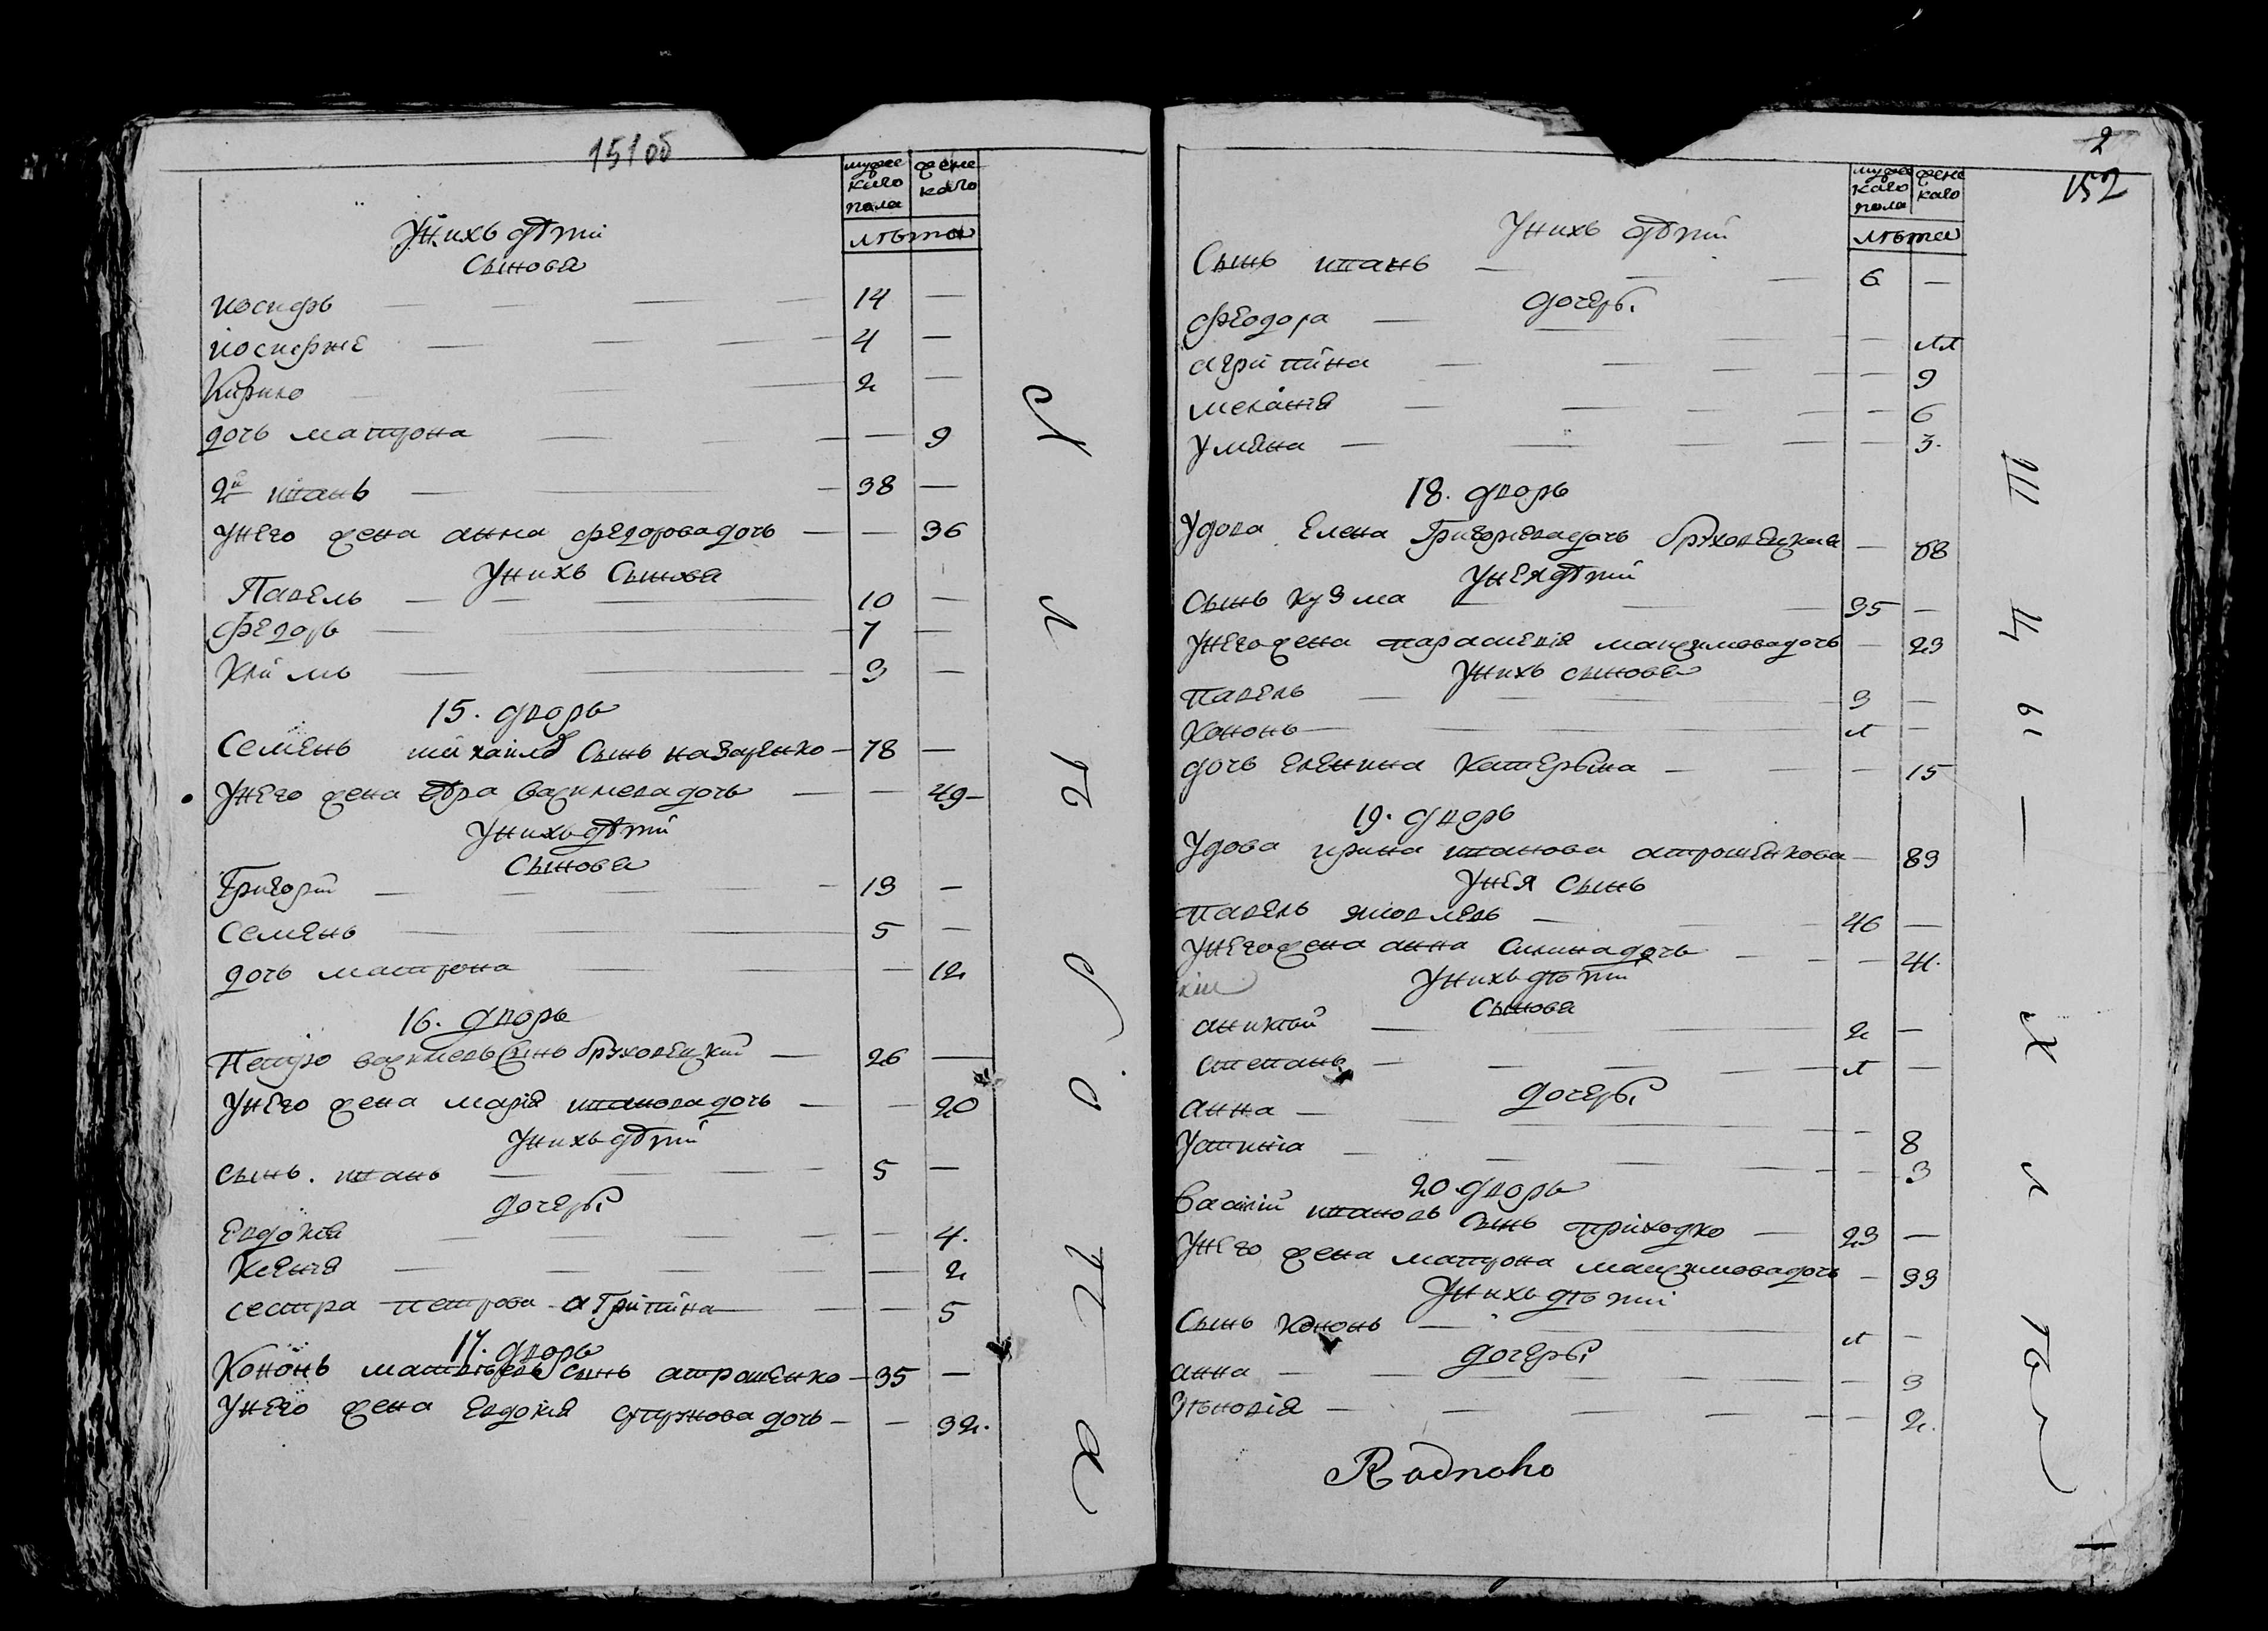 151об
мужескаго пола
женскаго
лѣта
У нихъ дѣти
Сынова
иосифъ — 14 —
иосифже — 4 —
Кирило — 2 —
дочь матрона — — 9
2й иванъ — 38 —
У него жена анна федоровадочь — — 36
У нихъ Сынова
Павелъ — 10 —
федоръ — 7 —
Клим — 3 —
15. дворъ
Семенъ михаиловъ Сынъ назаренко — 78 —
У него жена васильевадочь — — 49
У нихъ дѣти
Сынова
Григорій — 13 —
Семенъ — 5 —
дочь матрона — — 12
16. дворъ
Петро Сынъ бруховецкій — 26 —
У него жена марія ивановадочь — — 20
У нихъ дѣти
сынъ. иванъ — 5 —
дочеры
Евдокія — — 4.
Ксенія — — 2
сестра петрова агрипина — — 5
17. дворъ
Кононъ матвѣевъ сынъ атрошенко — 35 —
У него жена Евдокія дочь — — 32.
2
152
мужескаго пола
женскаго
лѣта
У нихъ дѣти
Сынъ иванъ — 6 —
дочеры
феодора — — 11
агрипина — — 9
меланія — — 6
Умяна — — 3.
18. дворъ
Удова Елена Григориевадочь бруховецкая — 68
У нея дѣти
Сынъ кузма — 35 —
У него жена параскевія максимовадочь — 23
У нихъ сынова
павелъ — 3 —
Кононъ — 1 —
дочь еленина Катерына — — 15
19. дворъ
Удова ирина иванова атрошенкова — 83
У нея сынъ
павелъ яковлевъ — 46 —
У него жена анна дочь — — 41.
У нихъ дѣти
Сынова
аникій — 2 —
степанъ — 1 —
дочеры
анна — — 8
Устинія — — 3
20. дворъ
Василій ивановъ Сынъ приходко — 23 —
У него жена матрона максимовадочь — 33
У нихъ дѣти
Сынъ Кононъ — 1 —
дочеры
анна — — 3
Зѣновія — — 2.